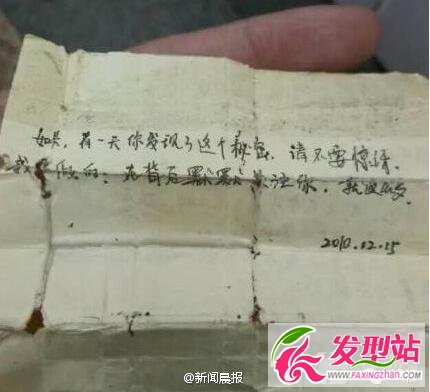 如果，有一天你发现了这个秘密，请不要惊讶。
我要做的：在背后默默关注你，就这么多
2010.12.15
@新闻晨报
发型站
www.FAXINGZHAN.com